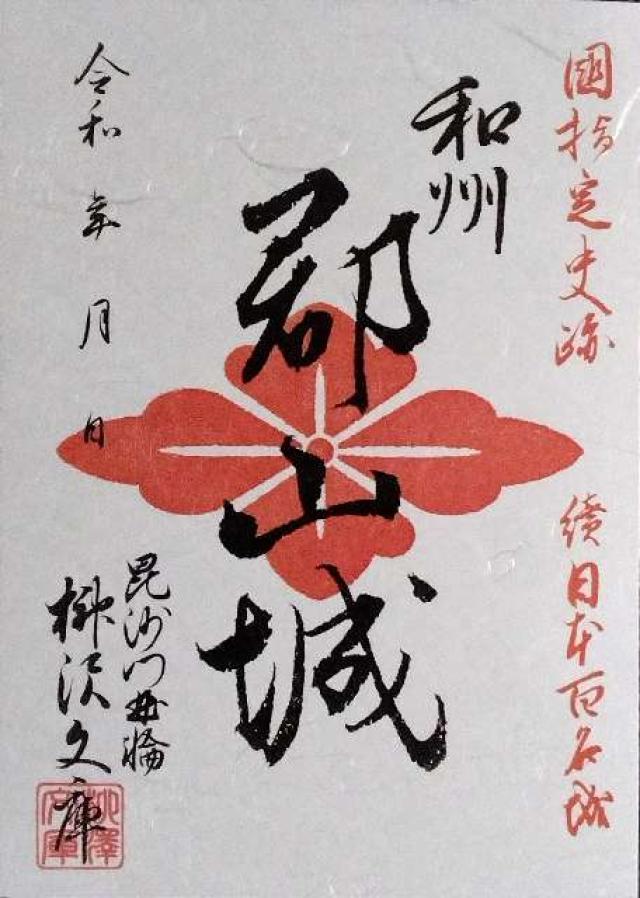 國指定史跡
續日本百名城
和州
郡山城
令和 年 月 日
毘沙門曲輪
柳沢文庫
柳澤
文庫